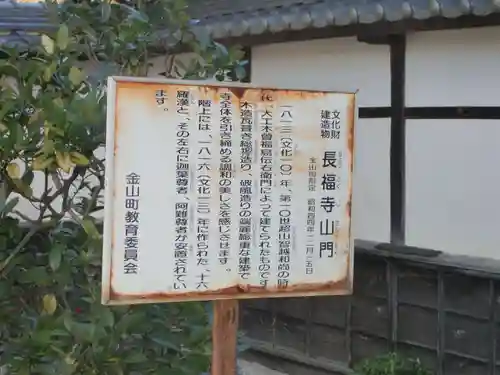 文化財
建造物
長福寺山門
ちょうふくじさんもん
金山町指定 昭和四四年一二月二五日
一八一三(文化一〇)年、第一〇世超山智越和尚の時
代、大工木曽福島伝右衛門によって建てられたものです。
木造瓦葺き総欅造り、破風造りの端麗軽重な建築で
寺全体を引き締める調和の美しさを感じさせます。
階上には、一八一六(文化一三)年に作られた、十六
羅漢と、その左右に迦葉尊者、阿難尊者が安置されてい
ます。
金山町教育委員会